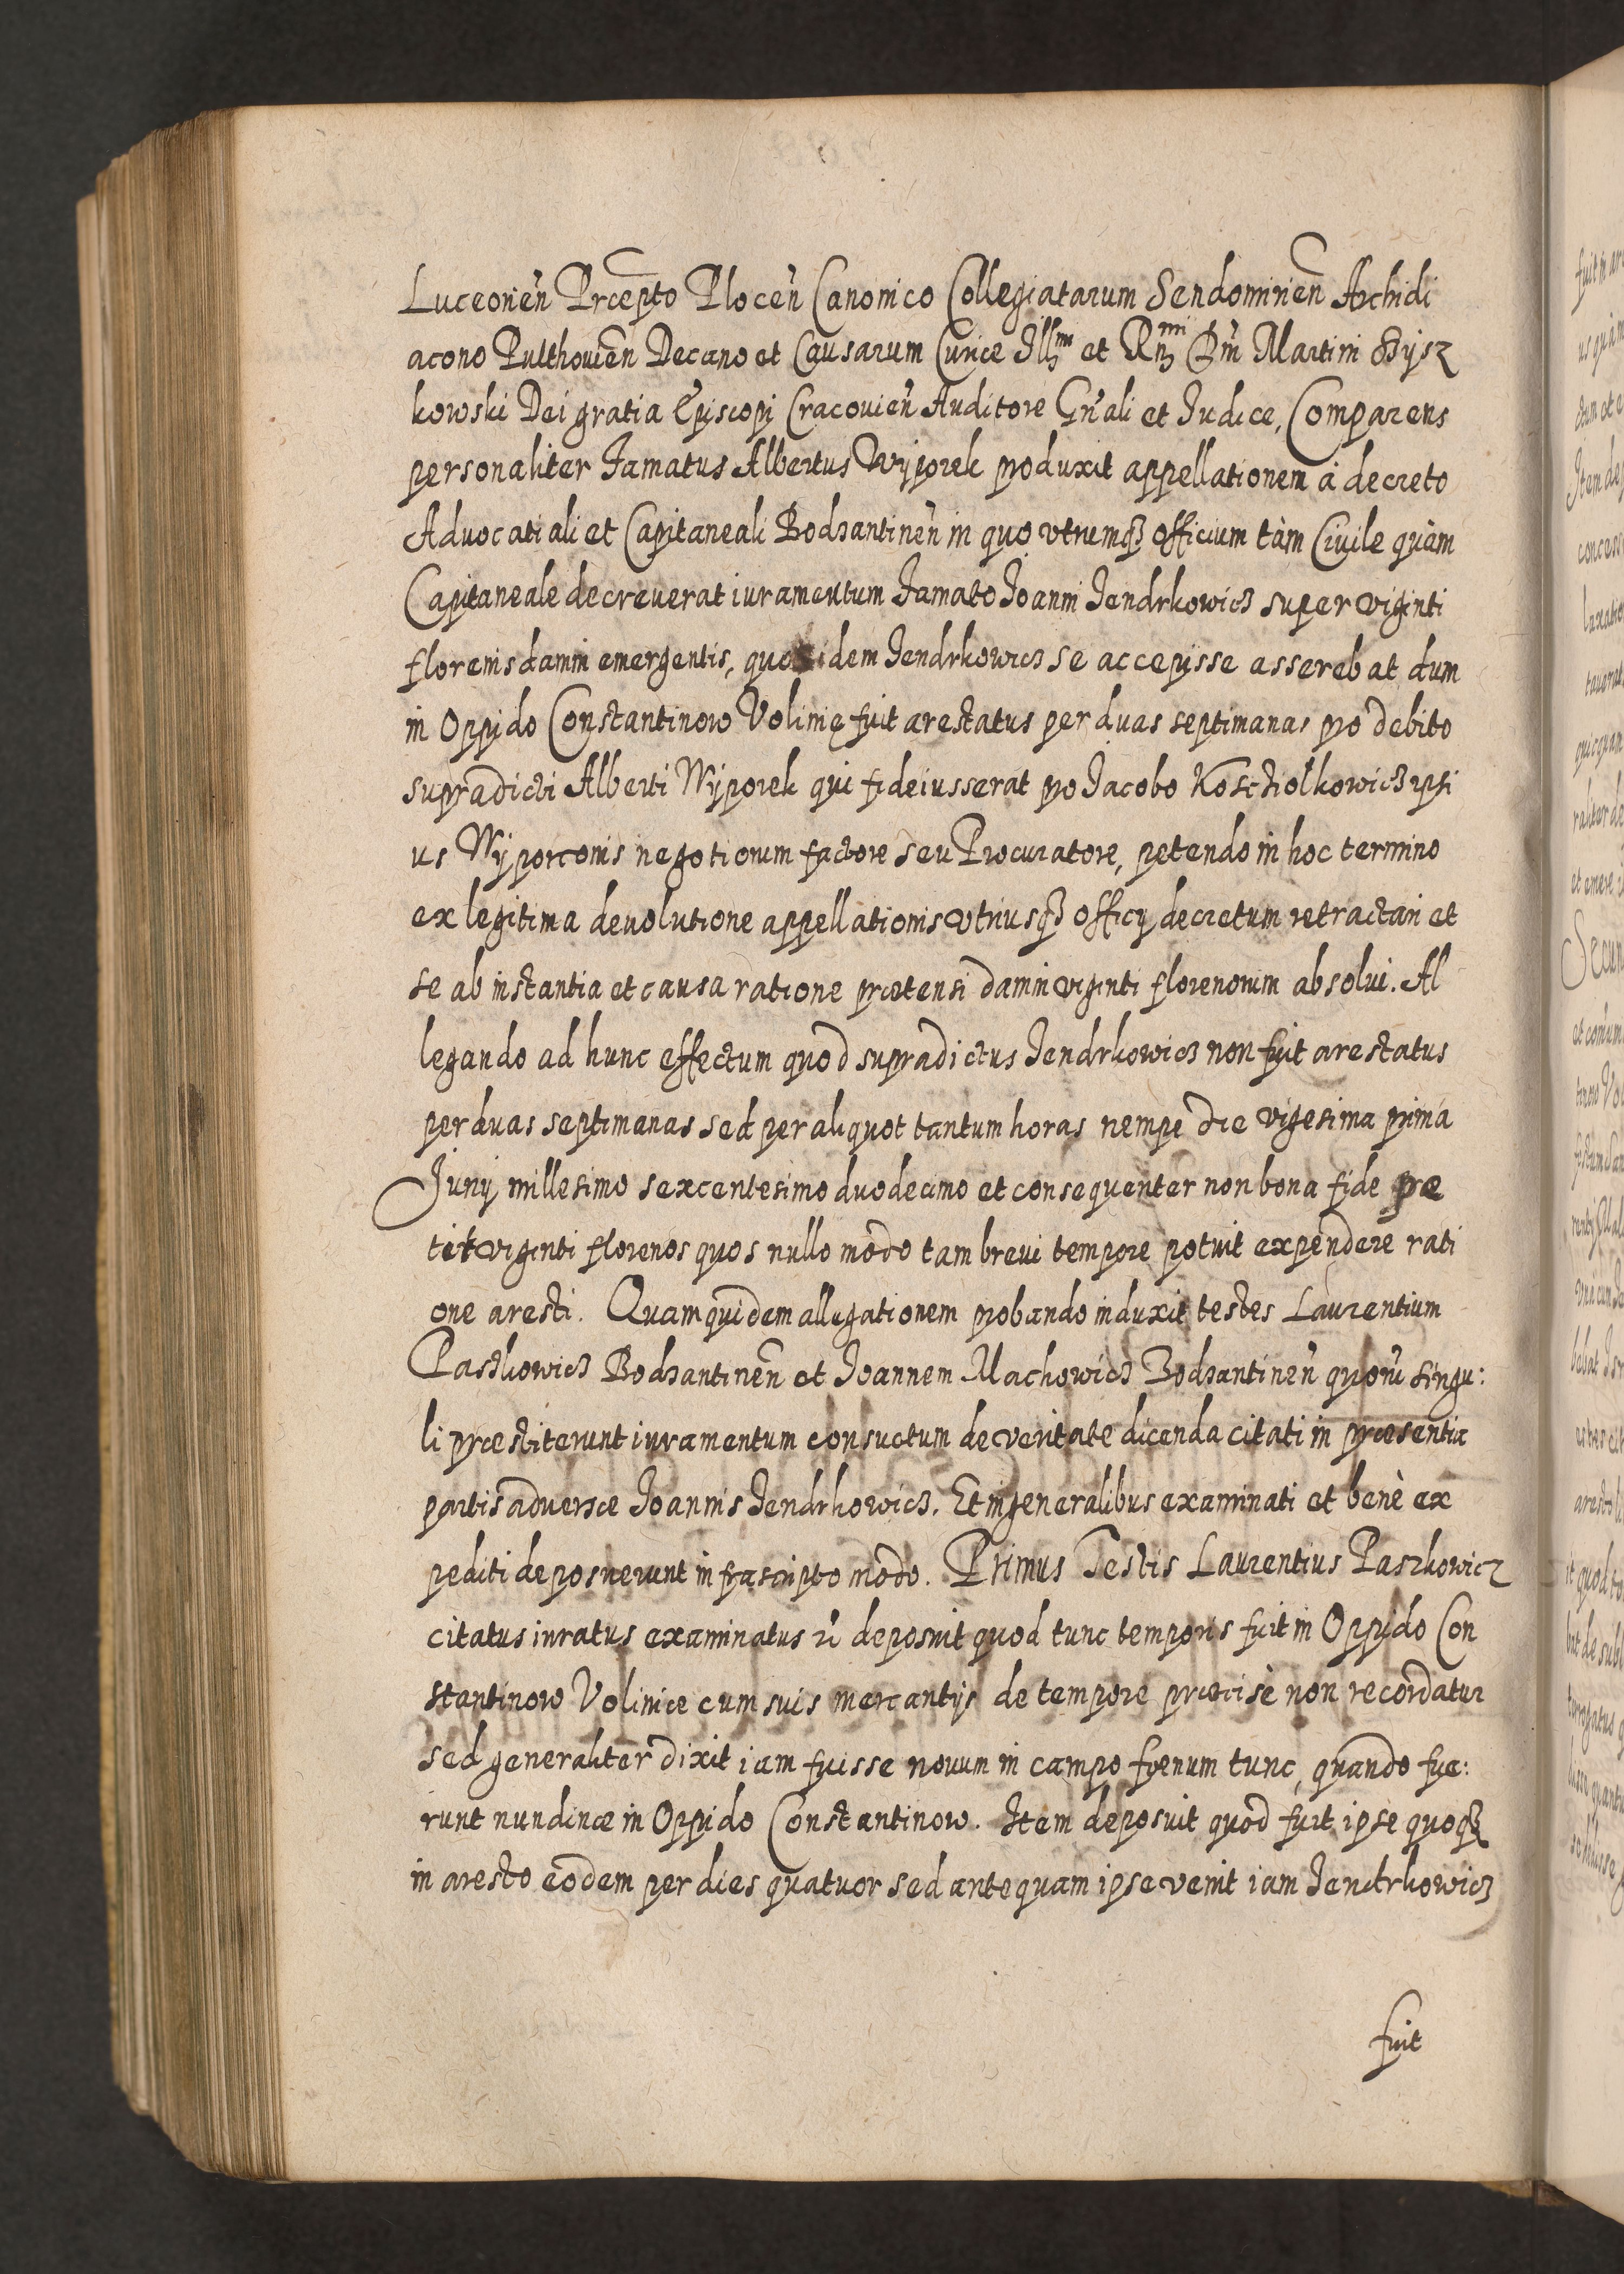 Luceorien̄ Prcepto Plocen̄ Canonico Collegiatarum Sendomirien̄ Archidi
acono Pulthouien̄ Decano et Causarum Curiæ Illmi et Rndmi Dn̄i Martini Szysz
kowski Dei gratia Episcopi Cracouien̄ Auditore Gn̄ali et Iudice, Comparens
personaliter Famatus Albertus Wyporek produxit appellationem à decreto
Aduocatiali et Capitaneali Bodzantinen̄ in quo vtrumqȝ officium tàm Ciuile quàm
Capitaneale decreuerat iuramentum Famato Ioanni Iendrkowicz super viginti
florenis damni emergentis, quos idem Iendrkowicz se accepisse asserebat dum
in Oppido Constantinow Volinię fuit arestatus per duas septimanas pro debito
supradicti Alberti Wyporek qui fideiusserat pro Iacobo Koscziołkowicz ipsi
us Wyporconis negotiorum factore seu Procuratore, petendo in hoc termino
ex legitima deuolutione appellationis vtriusqȝ officij decretum retractari et
se ab instantia et causa ratione prætensi damni viginti florenorum absolui. Al
legando ad hunc effectum quod supradictus Iendrkowicz non fuit arestatus
per duas septimanas sed per aliquot tantum horas nempe die vigesima prima
Iunij millesimo sexcentesimo duodecimo et consequenter non bona fide pe
tit viginti florenos quos nullo modo tam breui tempore potuit expendere rati
one aresti. Quam quidem allegationem probando induxit testes Laurentium
Paszkowicz Bodzantinen̄ et Ioannem Machowicz Bodzantinen̄ quorū singu:
li præstiterunt iuramentum consuetum de veritate dicenda citati in præsentia
partis aduersæ Ioannis Iendrkowicz. Et in generalibus examinati et benè ex
pediti deposuerunt infrascripto modo. Primus Testis Laurentius Paszkowicz
citatus iuratus examinatus rn̄ deposuit quod tunc temporis fuit in Oppido Con
stantinow Voliniæ cum suis mercantijs de tempore præcisè non recordatur
sed generaliter dixit iam fuisse nouum in campo fœnum tunc, quando fue:
runt nundinæ in Oppido Constantinow. Item deposuit quod fuit ipse quoqȝ
in aresto eodem per dies quatuor sed antequam ipse venit iam Iendrkowicz
fuit